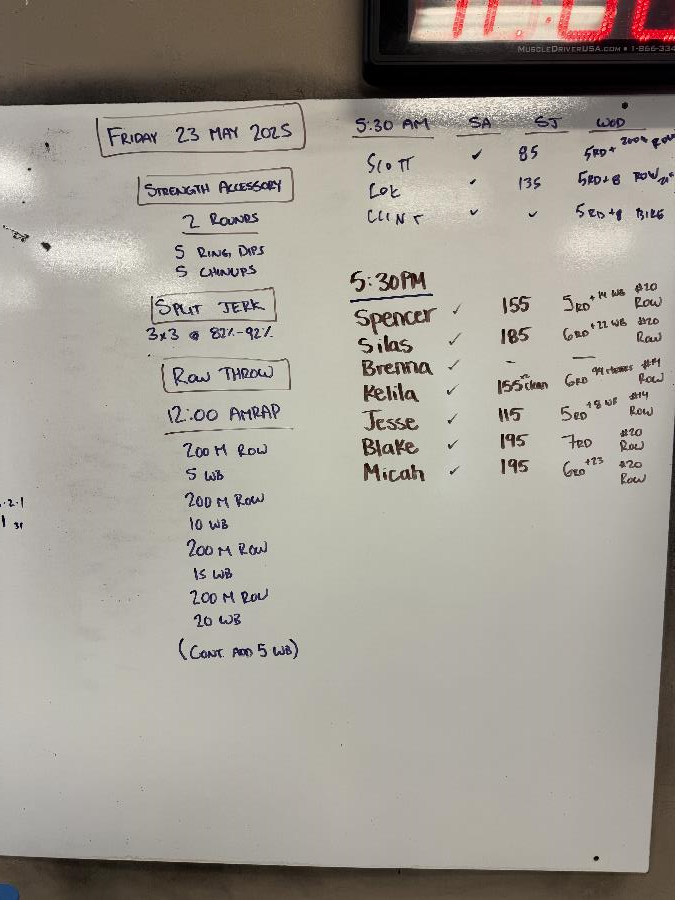 MUSCLEDRIVERUSA.COM • 1-866-334
FRIDAY 23 MAY 2025
STRENGTH ACCESSORY
2 ROUNDS
5 RING DIPS
5 CHINUPS
SPLIT JERK
3x3 @ 82%-92%
ROW THROW
12:00 AMRAP
200 M ROW
5 WB
200 M ROW
10 WB
200 M ROW
15 WB
200 M ROW
20 WB
(CONT. ADD 5 WB)
5:30 AM SA SJ WOD
SCOTT ✓ 85 5RD+ 200M ROW
✓ 135 5RD+8 ROW
CLINT ✓ ✓ 5RD+8 BIKE
5:30PM
Spencer ✓ 155 5RD +14 WB #20 Row
Silas ✓ 185 6RD +22 WB #20 Row
Brenna ✓ - —
Kelila ✓ 155 clean 6RD #14 Row
Jesse ✓ 115 5RD +8 WB #14 Row
Blake ✓ 195 7RD #20 Row
Micah ✓ 195 6RD +23 #20 Row